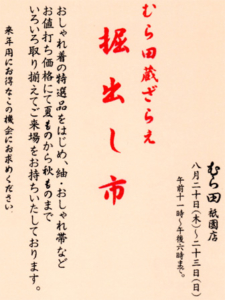 むら田蔵ざらえ
掘出し市
むら田 祇園店
八月二十日(木)〜二十三日(日)
午前十一時〜午後六時まで。
おしゃれ着の特選品をはじめ、紬・おしゃれ帯など
お値打ち価格にて夏ものから秋ものまで
いろいろ取り揃えてご来場をお持ちいたしております。
来年用にお得なこの機会にお求めください。